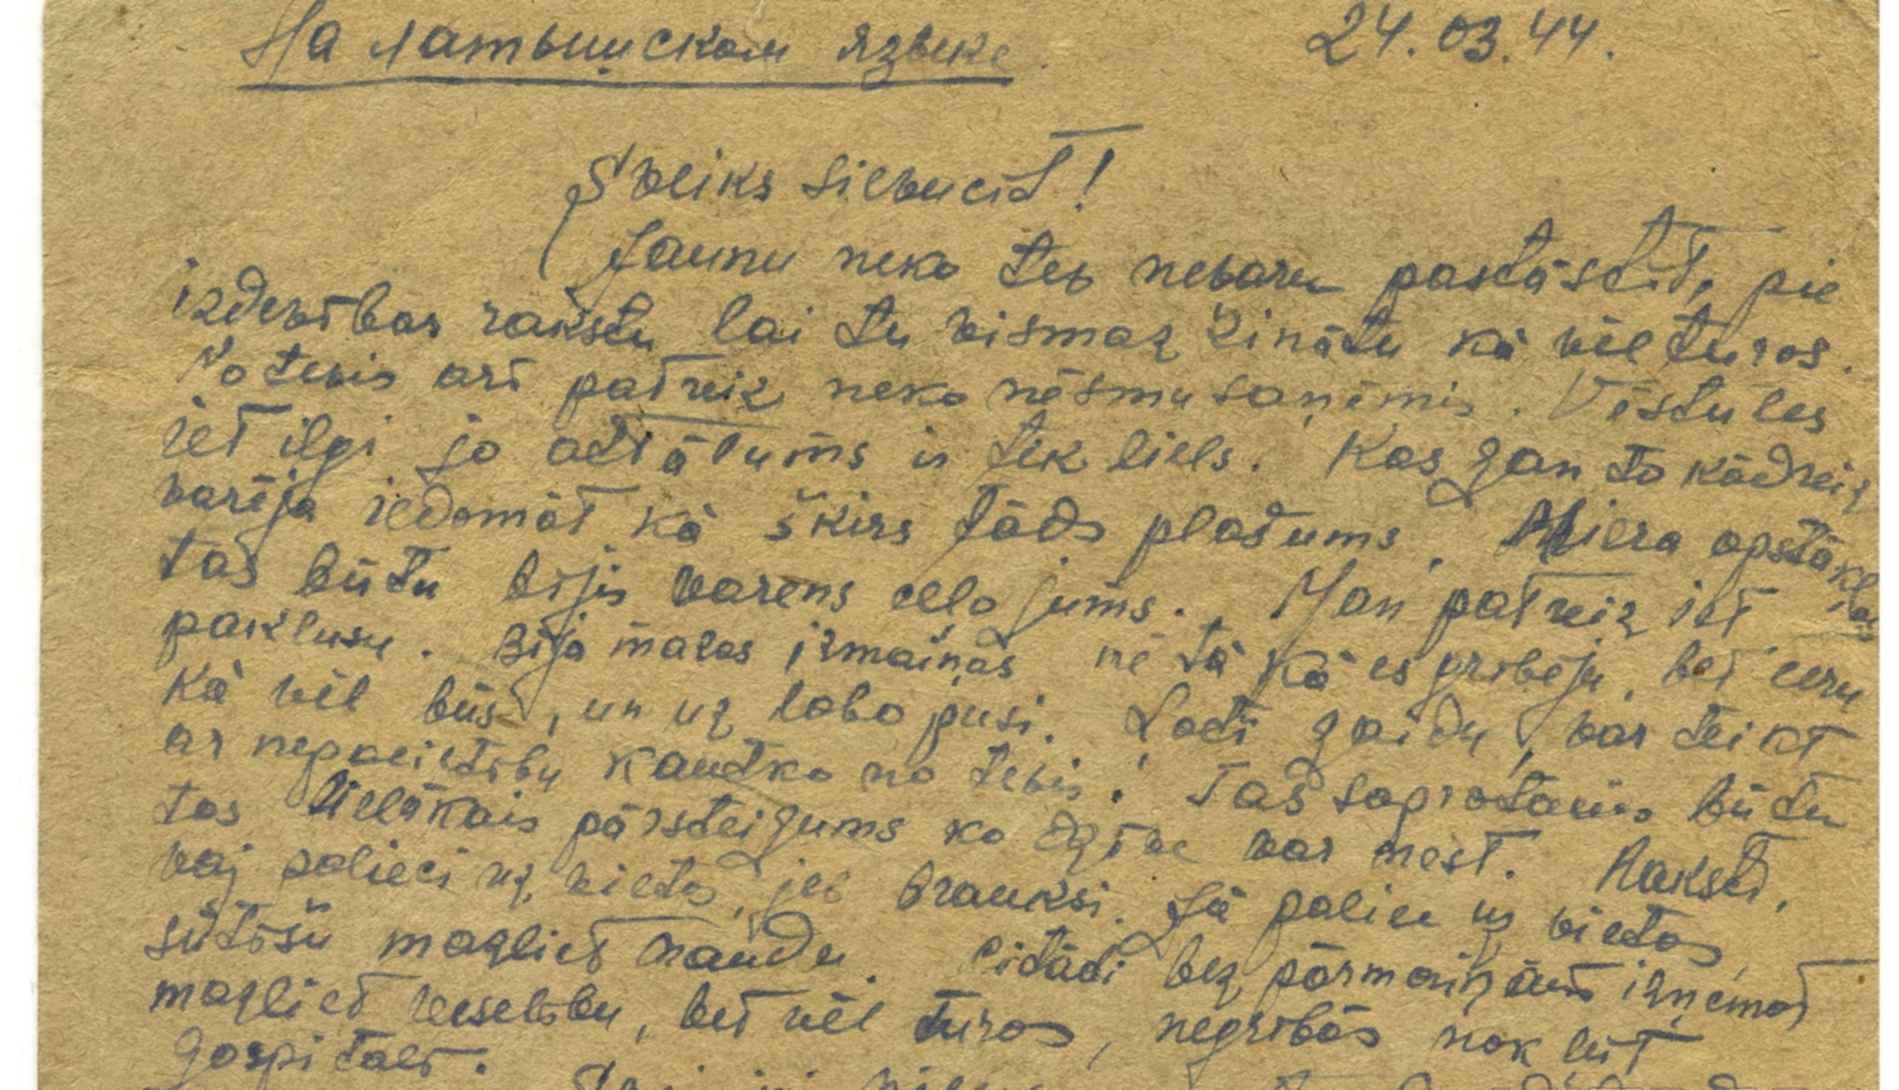 На латышском языке 24.03.44.
Sveiks Silvucīt!
Jaunu neko tev nevaru pastāstīt, pie
izdevības rakstu lai tu vismaz zinātu kā vēl turos.
No tevis arī patreiz neko nēsmu saņēmis. Vēstules
iet ilgi jo attālums ir tik liels. Kas gan to kādreiz
varēja iedomāt kā šķirs tāds plašums. Miera apstākļos
tas būtu bijis varens ceļojums. Man patreiz iet
paklusu. Bija mazas izmaiņas nē tā kā es gribēju, bet ceru
kā vēl būs, un uz labo pusi. Ļoti gaidu, var teikt
ar nepacietību kautko no tevis! Tas saprotams būtu
tas lielākais pārsteigums ko dzīve var mest. Raksti,
vaj paliec uz vietas, jeb brauksi. Jā paliec uz vietas,
sūtīšu mazliet naudu. Citādi bez pārmaiņām izņemot
mazliet veselību, bet vēl turos, negribās nokļūt
gospitalī.